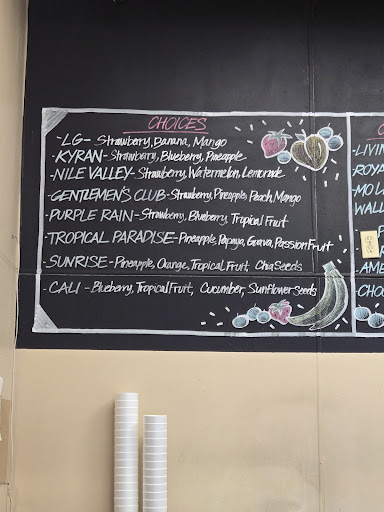 CHOICES
-LG- Strawberry, Banana, Mango
-KYRAN- Strawbarry, Blueberry, Pineapple
-NILE VALLEY- Strawberry, Watermelon, Lemonade
-GENTLEMEN'S CLUB- Strawberry, Pineapple, Peach, Mango
-PURPLE RAIN- Strawberry, Blueberry, Tropical Fruit
-TROPICAL PARADISE- Pineapple, Papaya, Guava, Passion Fruit
-SUNRISE- Pineapple, Orange, Tropical Fruit, Chia Seeds
-CALI- Blueberry, Tropical Fruit, Cucumber, Sunflower Seeds
LIVIN
ROYA
MOL
WALL
AME
CHOC